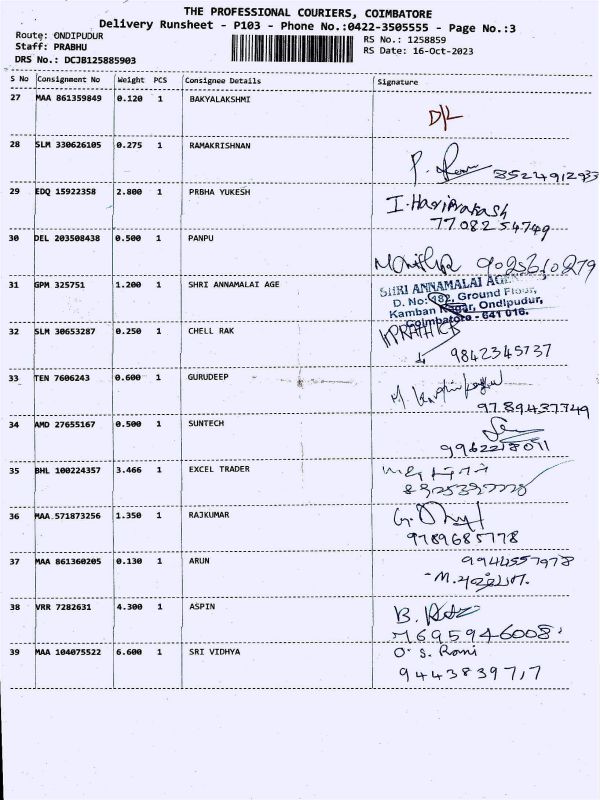 THE PROFESSIONAL COURIERS, COIMBATORE
Delivery Runsheet - P103 - Phone No.:0422-3505555 - Page No.:3
Route: ONDIPUDUR
RS No.: 1258859
Staff: PRABHU
RS Date: 16-Oct-2023
DRS No.: DCJB125885903
S No Consignment No Weight PCS Consignee Details Signature
27 MAA 861359849 0.120 1 BAKYALAKSHMI
D/L
28 SLM 330626105 0.275 1 RAMAKRISHNAN
P.
29 EDQ 15922358 2.800 1 PRBHA YUKESH
I. Hariprakash
7708254749
30 DEL 203508438 0.500 1 PANPU
31 GPM 325751 1.200 1 SHRI ANNAMALAI AGE
SHRI ANNAMALAI
D. No: 182, Ground Floor,
Kamban Nagar, Ondipudur,
Coimbatore - 641 016.
32 SLM 30653287 0.250 1 CHELL RAK
9842345737
33 TEN 7606243 0.600 1 GURUDEEP
9789437749
34 AMD 27655167 0.500 1 SUNTECH
9962218011
35 BHL 100224357 3.466 1 EXCEL TRADER
36 MAA.571873256 1.350 1 RAJKUMAR
9789685778
37 MAA 861360205 0.130 1 ARUN
9944557978
38 VRR 7282631 4.300 1 ASPIN
B.
7695946008
39 MAA 104075522 6.600 1 SRI VIDHYA
O. S. Rani
9443839717